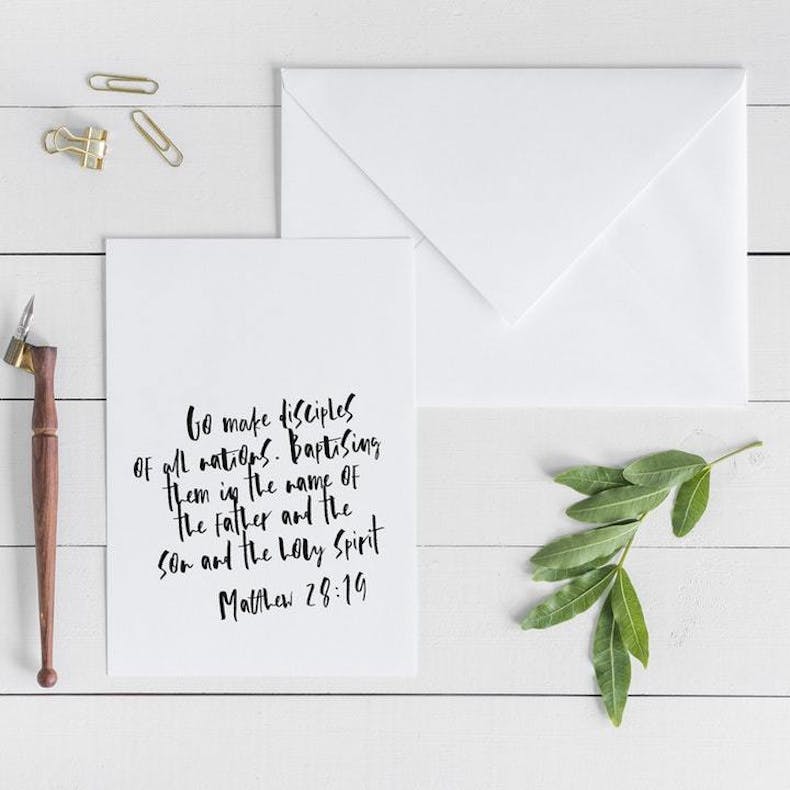 Go make disciples
of all nations. Baptising
them in the name of
the Father and the
son and the holy spirit
Matthew 28:19